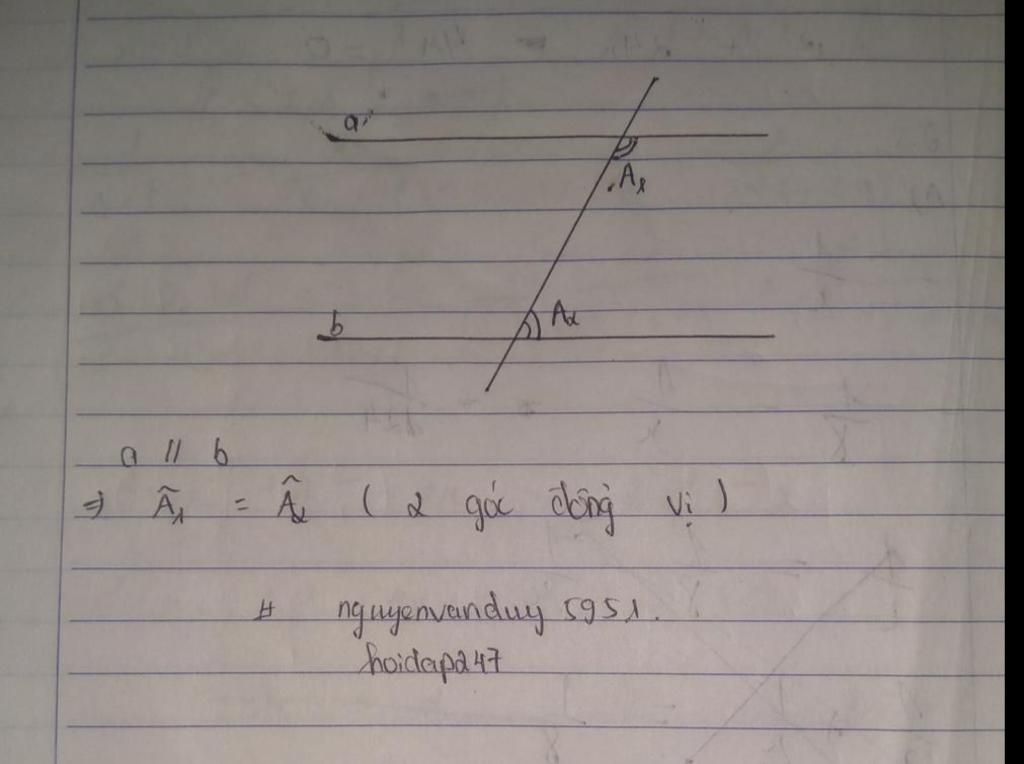 a
A₁
b
A₂
a // b
⇒ Â₁ = Â₂ ( 2 góc đồng vị )
# nguyenvanduy 5951.
hoidap247